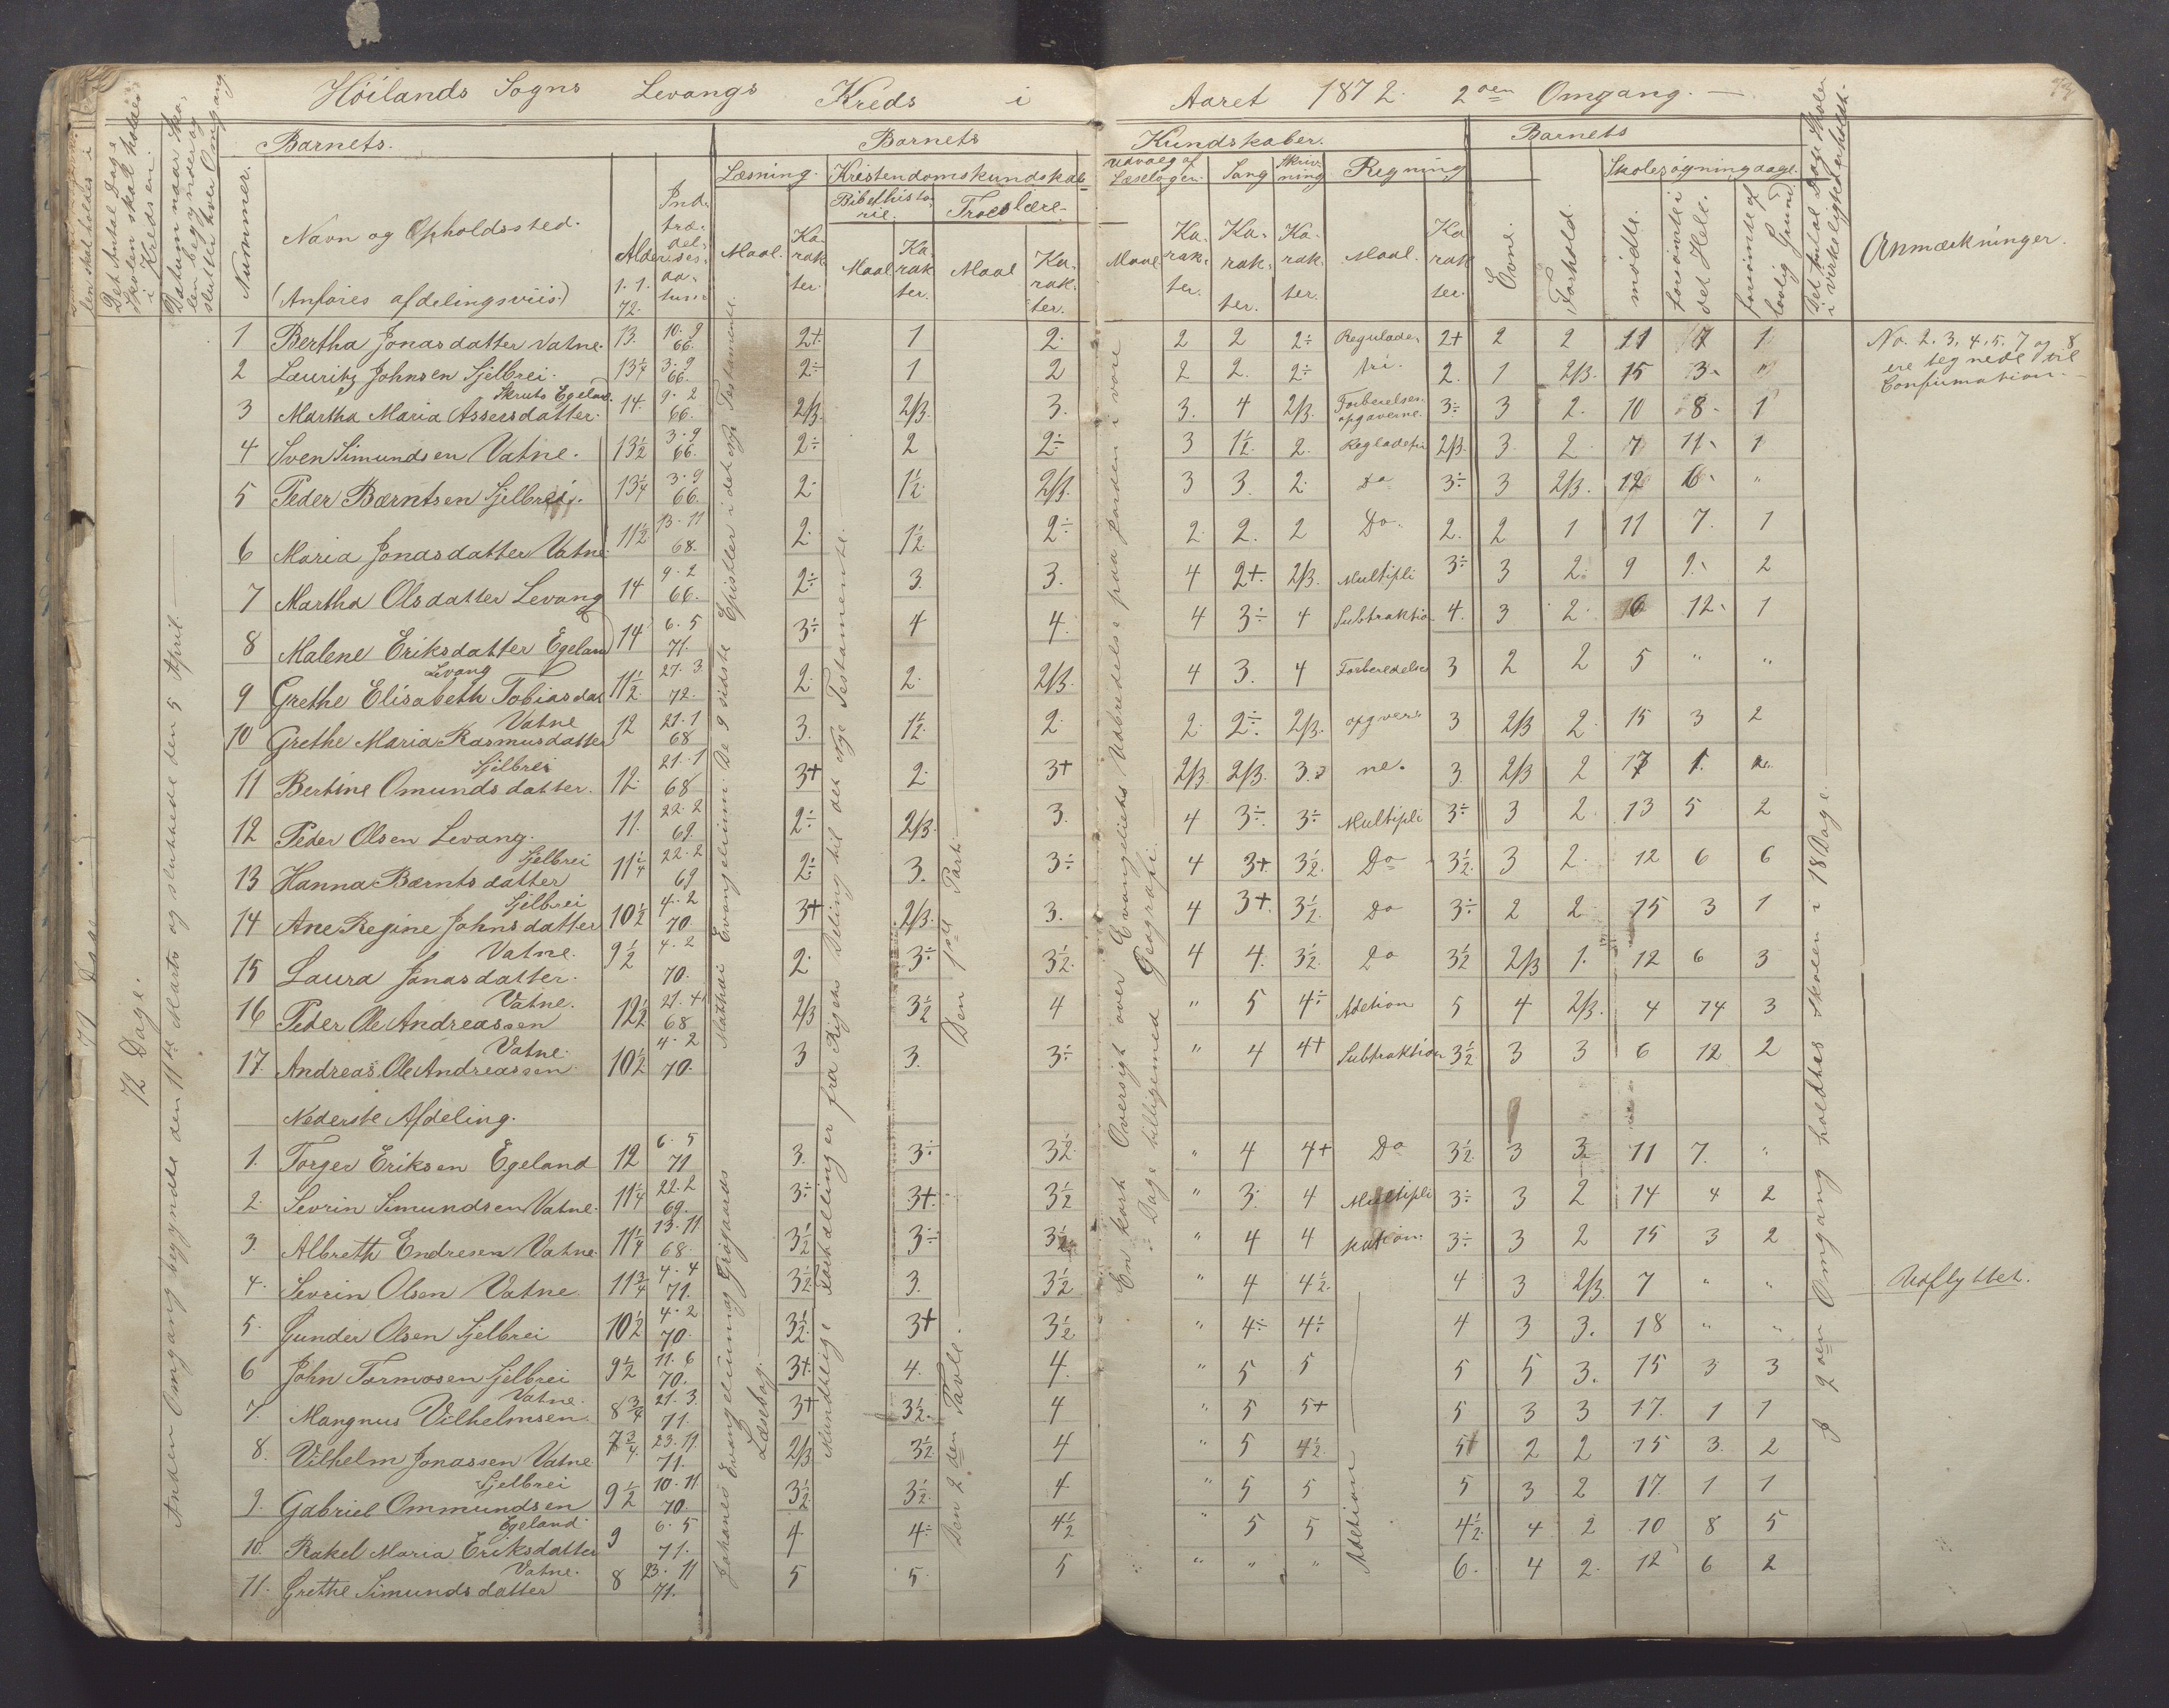 Höilands Sogns Levangs Kreds i Aaret 1872. 2den Omgang. —
Det Antal Dage Skolen skal holdes i Kredsen.
Datum naar Skolen begynder og sluttede hver Omgang
Nummer.
Barnets.
Navn og Opholdssted.
(Anføres afdelingsviis.)
Alder 1. 1. 72.
Indtrædelsesdatum
Barnets Kundskaber.
Læsning. Maal. Karakter.
Kristendomskundskab
Bibelhistorie. Maal Karakter.
Troeslære. Maal Karakter.
Udvalg af Læsebogen. Maal Karakter.
Sang Karakter.
Skrivning Karakter.
Regning Maal. Karakter.
Barnets
Evne. Forhold.
Skolesøgningdage.
mödte. forsömte i det Hele. forsömte af lovlig Grund
Det Antal Dage Skolen i Virkeligheden holdt.
Anmærkninger.
72 Dage.
Anden Omgang begyndte den 11te Marts og sluttede den 5 April
Mathæi Evangelium. De 9 sidste Epistler i det nye Testamente.
Mundtlige Fortællinger fra Rigets Deling til det nye Testamente.
Den 1ste Part.
En kort Oversigt over Evangeliets Udbredelse paa Jorden i vore Dage tilligemed Geografi.
I 2den Omgang holdtes Skolen i 18 Dage
1 Bertha Jonasdatter Vatne. 13. 10.9 66. 2+ 1 2. 2 2 2÷ Reguladetri 2+ 2 2 11 7 1
No. 2. 3. 4. 5. 7 og 8 ere tegnede til Confirmation.
2 Lauritz Johnsen Sjelbrei. 13¼ 3.9 66. 2÷ 1 2 2 2. 2÷ tri. 2. 1 2/3. 15 3. "
3 Martha Maria Assersdatter. Skruts Egeland. 14. 9.2 66. 2/3. 2/3. 3. 3. 4 2/3. Forberelses opgaverne. 3÷ 3 2. 10 8. 1
4 Sven Simundsen Vatne. 13½ 3.9 66. 2÷ 2 2÷ 3 1½. 2. Regladetri 2/3. 3. 2. 7 11. 1
5 Peder Bærntsen Sjelbrei. 13¼ 3.9 66. 2. 1½. 2/3. 3 3. 2. Do 3÷ 3 2/3. 12 6. "
6 Maria Jonasdatter Vatne. 11½ 13.11 68. 2. 1½. 2÷ 2. 2. 2 Do. 2. 2 1 11 7. 1
7 Martha Olsdatter Levang 14 9.2 66. 2÷ 3. 3. 4 2+. 2/3. Multipli 3÷ 3 2. 9 9. 2
8 Malene Eriksdatter Egeland 14 6.5 71. 3÷ 4 4. 4 3÷ 4 Subtraktio 4. 3 2. 6 12. 1
9 Grethe Elisabeth Tobiasdat Levang 11½ 27.3 72. 2. 2. 2/3. 4 3. 4 Forberedelses 3 2 2 5 " "
10 Grethe Maria Rasmusdatter Vatne 12 21.1 68 3. 1½. 2. 2. 2÷ 2/3. opgver 3 2/3 2. 15 3 2
11 Bertine Omundsdatter. Sjelbrei 12. 21.1 68 3+ 2. 3+ 2/3. 2/3. 3. ne. 3. 2/3 2 17 1. "
12 Peder Olsen Levang. 11. 22.2 69. 2÷ 2/3. 3. 4 3÷. 3÷ Multipli 3÷ 3 2. 13 5 2
13 Hanna Bærntsdatter Sjelbrei 11¼ 22.2 69 2÷ 3. 3÷ 4 3+. 3½. Do 3½. 3 2. 12 6 6
14 Ane Regine Johnsdatter Sjelbrei 10½ 4.2 70. 3+ 2/3. 3. 4 3+. 3½. Do 3÷ 2 2 15 3 1
15 Laura Jonasdatter. Vatne. 9½ 4.2 70. 2. 3÷ 3½. 4 4. 3½. Do 3½ 2/3 1. 12 6 3
16 Peder Ole Andreassen Vatne. 12½ 21.4 68 2/3 3½ 4 " 5 4÷ Adetion 5 4 2/3. 4 14 3
17. Andreas Ole Andreassen Vatne. 10½ 4.2 70. 3 3. 3÷ " 4 4+ Subtraktion 3½. 3 3 6 12 2
Nederste Afdeling.
1. Torger Eriksen Egeland 12 6.5 71 3. 3÷ 3½. " 4 4+ Do 3½. 3 3 11 7. "
2. Sevrin Simundsen Vatne. 11¼ 22.2 69. 3÷ 3+. 3½ " 3. 4 Multipli 3÷ 3 2 14 4 2
3. Albreth Endresen Vatne. 11¼ 13.11 68. 3½ 3÷ 3½ " 4 4 kation. 3÷ 3 2 15 3 2
4. Sevrin Olsen Vatne 11¾ 4.4 71. 3½ 3. 3½ " 4 4½. 4 3 2/3. 7 " " Udflyttet.
5. Gunder Olsen Sjelbrei 10½ 4.2 70. 3½. 3+ 3½ " 4÷ 4÷ 4 3 3. 18 " "
6 John Tormosen Sjelbrei 9½ 11.6 70. 3+. 4. 4. " 5 5 5 5 3. 15 3 3
7. Mangnus Vilhelmsen. Vatne. 8¾ 21.3 71. 3+ 3½. 4 " 5 5+ 5 3 3 17. 1 1
8. Vilhelm Jonassen Vatne 7¾. 23.11 71. 2/3 3½ 4 " 5 4½. 5+ 2 2 15 3. 2
9. Gabriel Ommundsen Sjelbrei 9½ 10.11 70. 3½. 3½. 4 " 5 5 5 3 2 17. 1 1
10. Rakel Maria Eriksdatter Egeland 9 6.5 71. 4 4÷ 4½ " 5 5 4½. 4 2 10 8 5
11. Grethe Simundsdatter Vatne. 8 23.11 71. 5 5. 5 " " " 6. 4 2. 12 6 2
Johanes Evangelium og Læsebog.
Den 2den Tavle.
Adetion